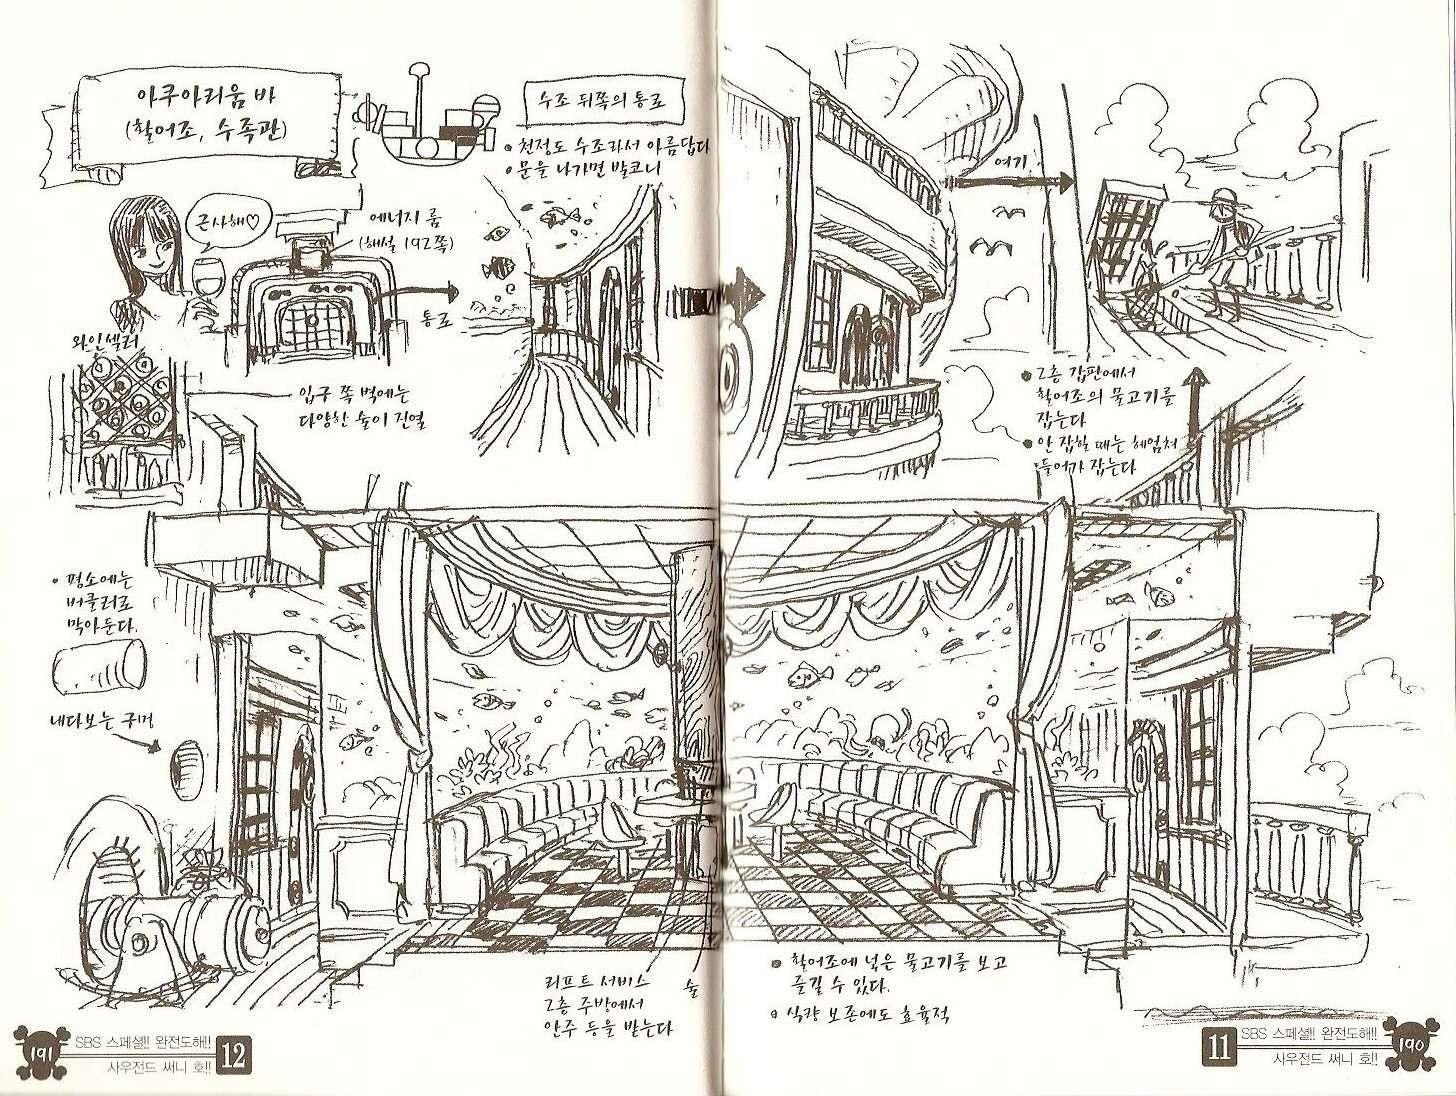 아쿠아리움 바
(활어조, 수족관)
수조 뒤쪽의 통로
• 천정도 수조라서 아름답다
• 문을 나가면 발코니
근사해♡
에너지 룸
(해설 192쪽)
통로
와인셀러
입구 쪽 벽에는
다양한 술이 진열
여기
• 2층 갑판에서
활어조의 물고기를
잡는다
• 안 잡힐 때는 헤엄쳐
들어가 잡는다
• 평소에는
버클러로
막아둔다.
내다보는 구멍
리프트 서비스
2층 주방에서
안주 등을 받는다
술
• 활어조에 넣은 물고기를 보고
즐길 수 있다.
• 식량 보존에도 효율적
191
SBS 스페셜!! 완전도해!!
사우전드 써니 호!!
12
11
SBS 스페셜!! 완전도해!!
사우전드 써니 호!!
190